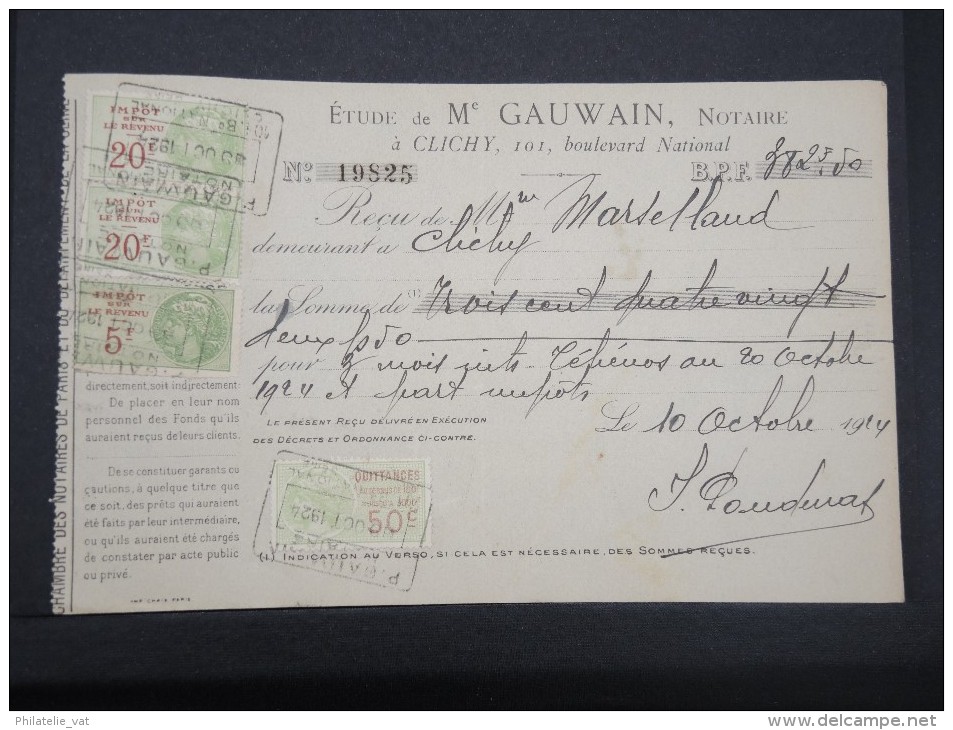 ÉTUDE de Me GAUWAIN, NOTAIRE
à CLICHY, 101, boulevard National
No 19825 B.P.F. 382f,50
Reçu de M
demeurant à Clichy
la Somme de (1) Trois cent quatre vingt
deux f 50
pour 3 mois ints au 20 Octobre
1924 et part impôts
LE PRÉSENT REÇU DÉLIVRÉ EN EXÉCUTION
DES DÉCRETS ET ORDONNANCE CI-CONTRE.
Le 10 Octobre 1924
(1) INDICATION AU VERSO, SI CELA EST NÉCESSAIRE, DES SOMMES REÇUES.
IMPÔT
SUR
LE REVENU
20F
IMPÔT
SUR
LE REVENU
20F
IMPÔT
SUR
LE REVENU
5F
directement, soit indirectement:
De placer en leur nom
personnel des Fonds qu'ils
auraient reçus de leurs clients.
De se constituer garants ou
cautions, à quelque titre que
ce soit, des prêts qui auraient
été faits par leur intermédiaire,
ou qu'ils auraient été chargés
de constater par acte public
ou privé.
QUITTANCES
50c
P. GAUWAIN
NOTAIRE
OCT 1924
CHAMBRE DES NOTAIRES DE PARIS ET DU DÉPARTEMENT
Philatelie_vat
delcampe.net